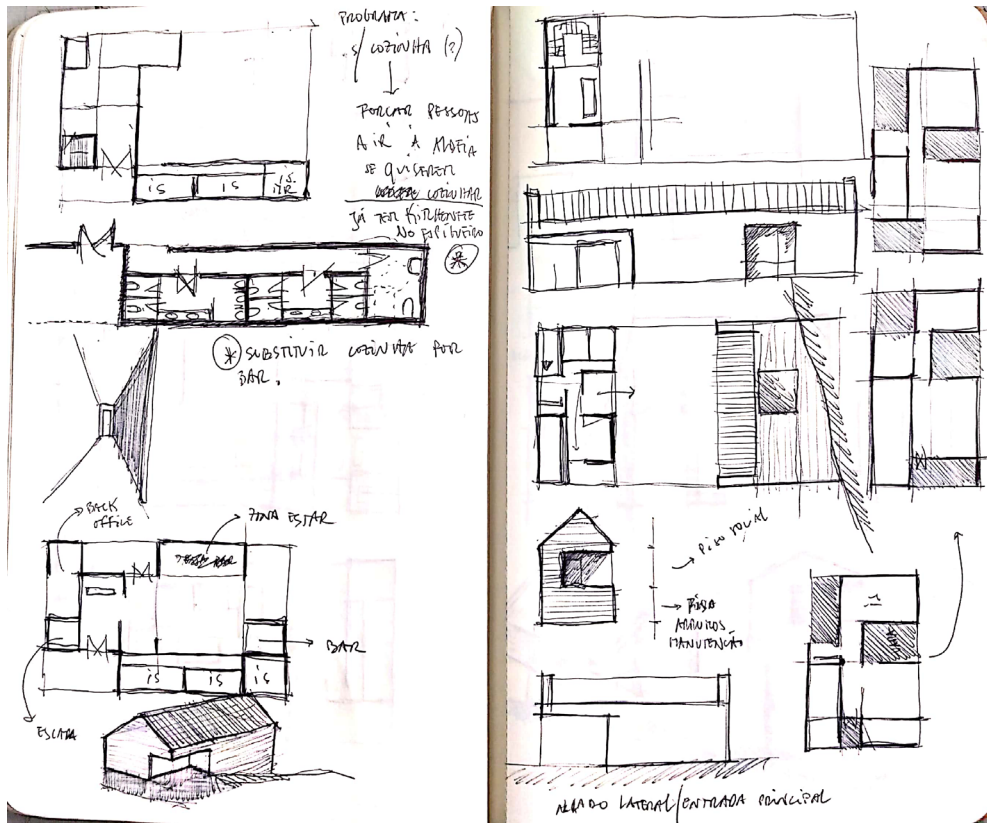 PROGRAMA:
S/ COZINHA (?)
FORÇAR PESSOAS
A IR À ALDEIA
SE QUISEREM
COZINHAR
JÁ TER KITCHENETE
NO
IS
IS
I.S.
*
* SUBSTITUIR COZINHA POR
BAR.
BACK
OFFICE
ZONA ESTAR
BAR
IS
IS
IS
ESCADA
PISO
MANUTENÇÃO
ALÇADO LATERAL/ENTRADA PRINCIPAL